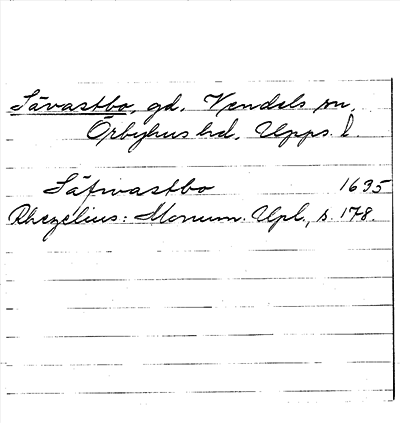 Sävastbo, gd. Vendels sn,
Örbyhus hd, Upps. l.
Säfwastbo 1635
Rhezelius: Monum. Upl., s. 178.